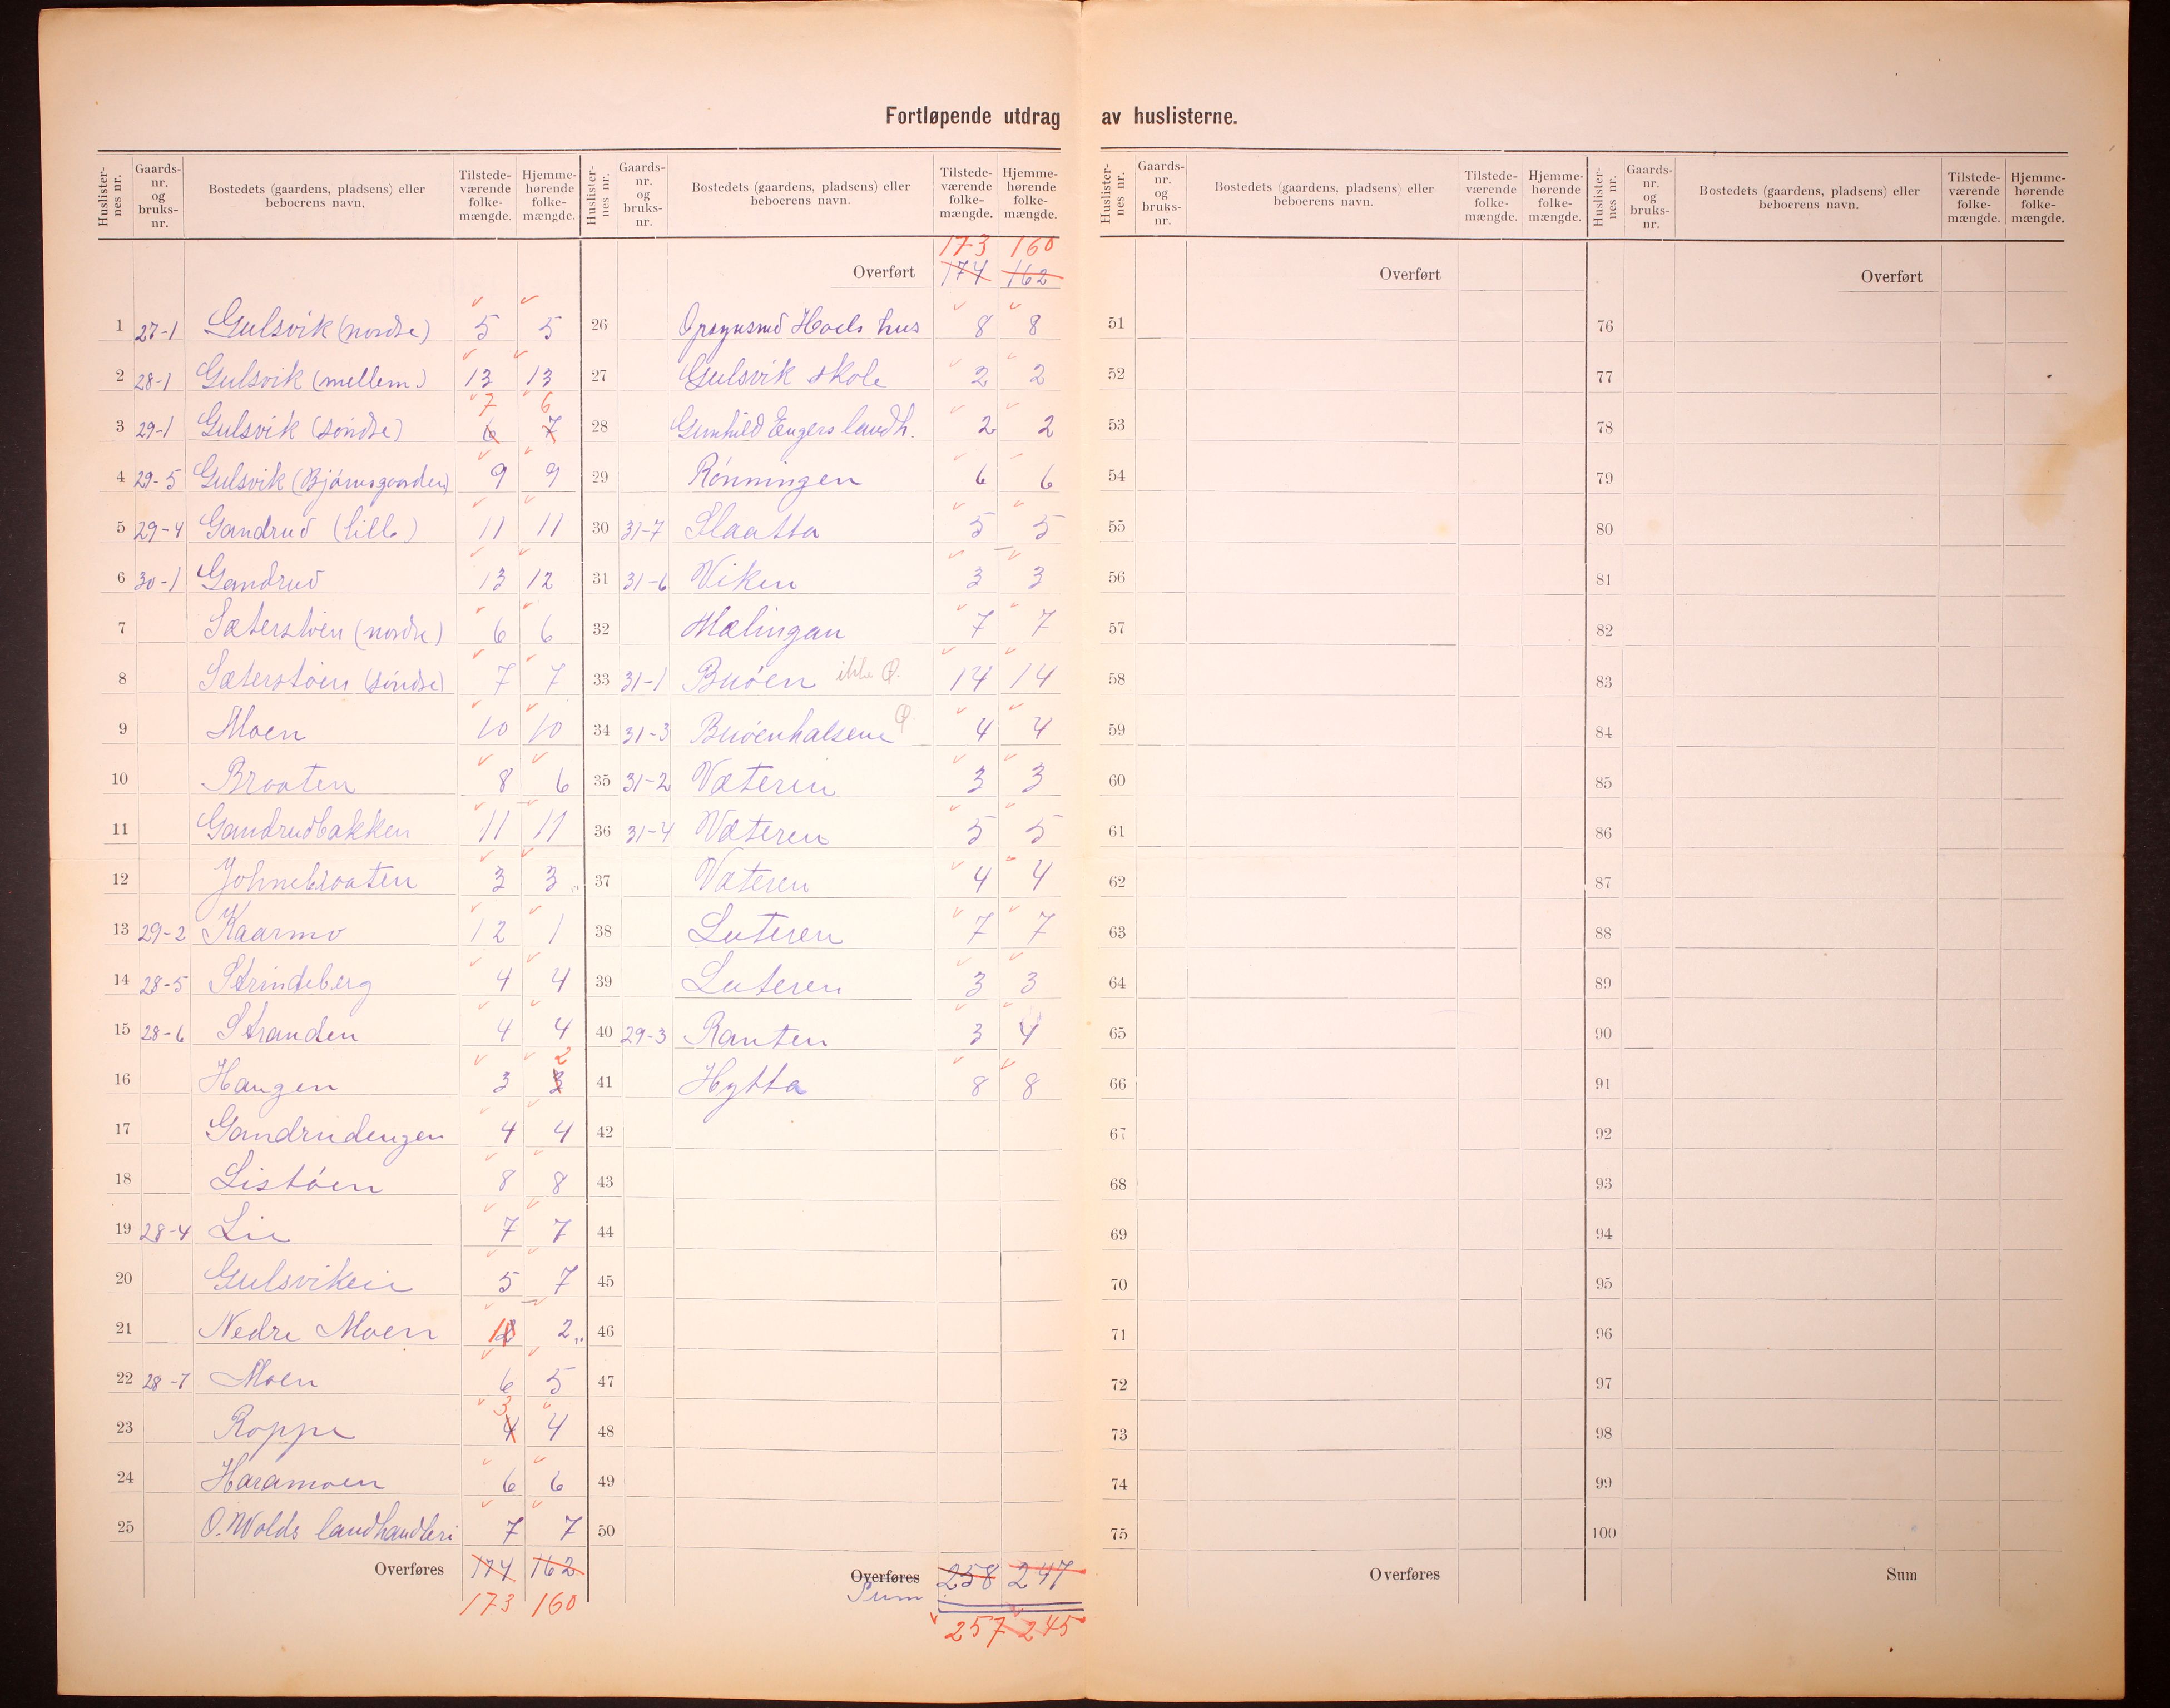 Fortløpende utdrag av huslisterne.
Huslisternes nr. Gaards-nr. og bruks-nr. Bostedets (gaardens, pladsens) eller beboerens navn. Tilstede-værende folke-mængde. Hjemme-hørende folke-mængde.
1 27-1 Gulsvik (nordre) 5 5
2 28-1 Gulsvik (mellem) 13 13
7 6
3 29-1 Gulsvik (søndre) 6 7
4 29-5 Gulsvik (Bjørnsgaarden) 9 9
5 29-4 Gandrud (lille) 11 11
6 30-1 Gandrud 13 12
7 Sæterstøen (nordre) 6 6
8 Sæterstøen (søndre) 7 7
9 Moen 10 10
10 Braaten 8 6
11 Gandrudbakken 11 11
12 Johnebraaten 3 3
13 29-2 Kaarmo 12 1
14 28-5 Strindeberg 4 4
15 28-6 Stranden 4 4
2
16 Haugen 3 3
17 Gandrudengen 4 4
18 Listøen 8 8
19 28-4 Lie 7 7
20 Gulsvikeie 5 7
21 Nedre Moen 2
22 28-7 Moen 6 5
3
23 Roppe 4 4
24 Haramoen 6 6
25 O. Wolds landhandleri 7 7
Overføres 174 162
173 160
Huslisternes nr. Gaards-nr. og bruks-nr. Bostedets (gaardens, pladsens) eller beboerens navn. Tilstede-værende folke-mængde. Hjemme-hørende folke-mængde.
173 160
Overført 174 162
26 Hoels hus 8 8
27 Gulsvik skole 2 2
28 Gunhild Engers landh. 2 2
29 Rønningen 6 6
30 31-7 Slaatta 5 5
31 31-6 Viken 3 3
32 Mælingan 7 7
33 31-1 Buøen ikke 14 14
34 31-3 Buøenhalsene 4 4
35 31-2 Væteren 3 3
36 31-4 Væteren 5 5
37 Væteren 4 4
38 Luteren 7 7
39 Luteren 3 3
40 29-3 Ranten 3 4
41 Hytta 8 8
42
43
44
45
46
47
48
49
50
Overføres 258 247
Sum
257 245
Huslisternes nr. Gaards-nr. og bruks-nr. Bostedets (gaardens, pladsens) eller beboerens navn. Tilstede-værende folke-mængde. Hjemme-hørende folke-mængde.
Overført
51
52
53
54
55
56
57
58
59
60
61
62
63
64
65
66
67
68
69
70
71
72
73
74
75
Overføres
Huslisternes nr. Gaards-nr. og bruks-nr. Bostedets (gaardens, pladsens) eller beboerens navn. Tilstede-værende folke-mængde. Hjemme-hørende folke-mængde.
Overført
76
77
78
79
80
81
82
83
84
85
86
87
88
89
90
91
92
93
94
95
96
97
98
99
100
Sum